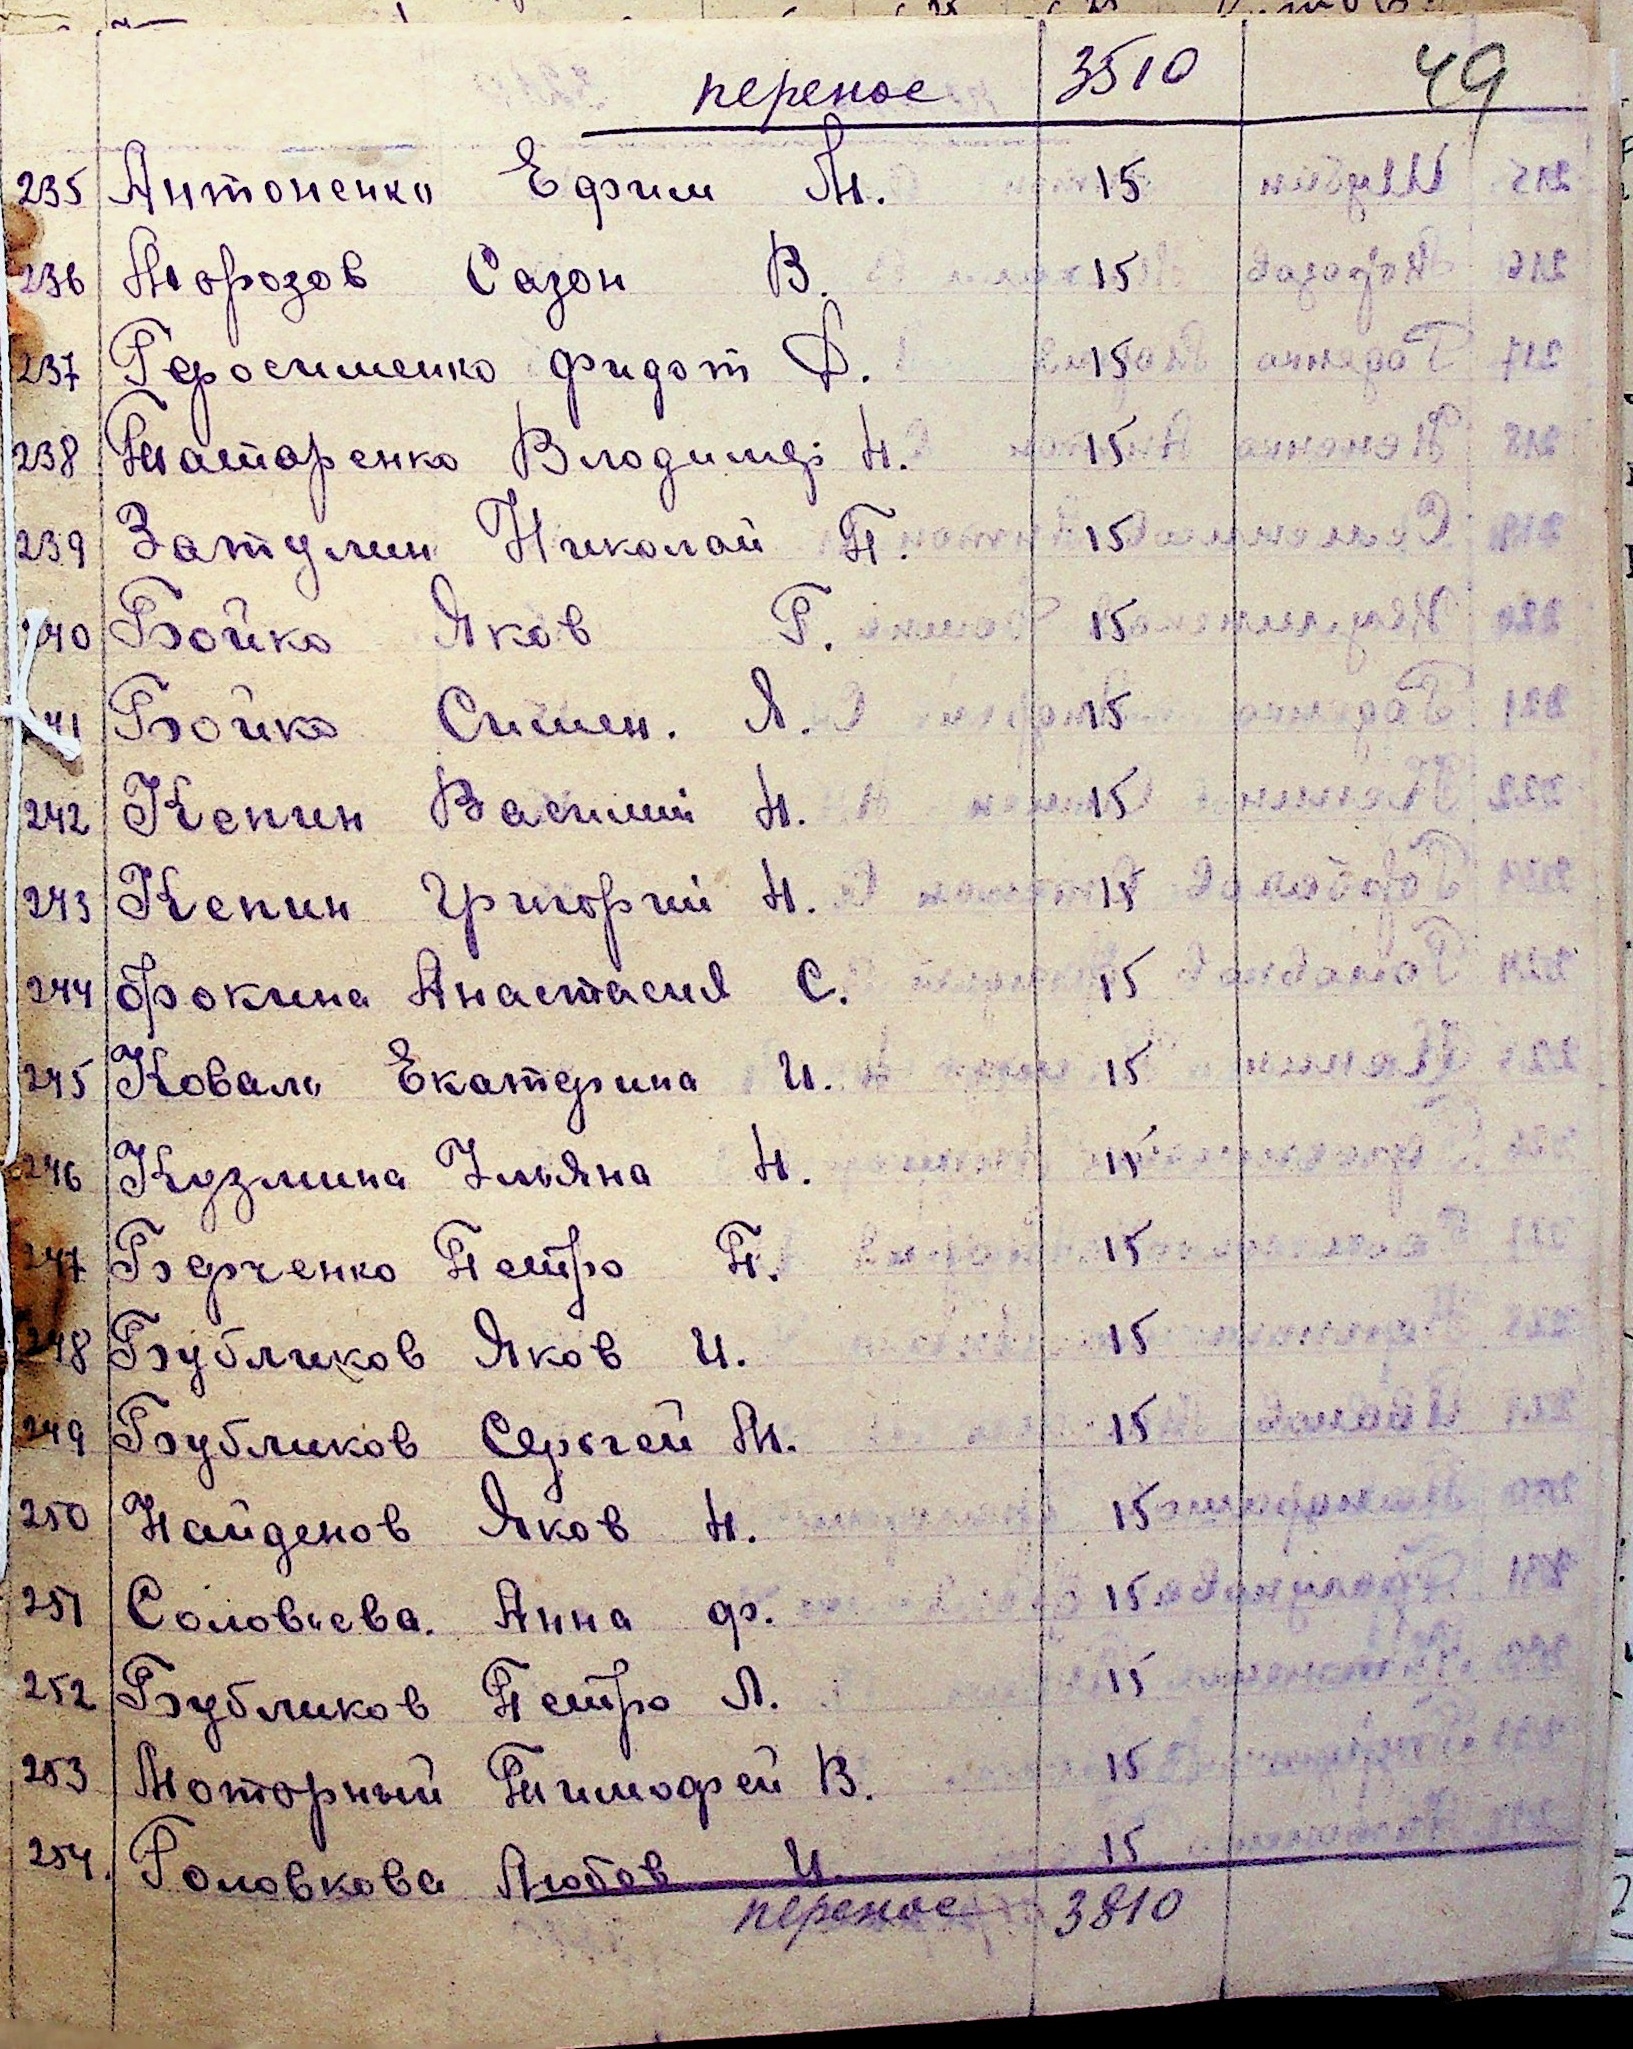 перенос 3510 49
235 Антоненко Ефим М. 15
236 Морозов Сазон В. 15
237 Геросименко Фидот Д. 15
238 Татаренко Владимер Н. 15
239 Затулин Николай П. 15
240 Бойко Яков Г. 15
241 Бойко Симен. Я. 15
242 Кепин Василий Н. 15
243 Кепин Григорий Н. 15
244 Фокина Анастасия С. 15
245 Коваль Екатерина И. 15
246 Кузмина Ульяна Н. 15
247 Берченко Петро П. 15
248 Бубликов Яков И. 15
249 Бубликов Сергей М. 15
250 Найденов Яков Н. 15
251 Соловьева. Анна Ф. 15
252 Бубликов Петро Л. 15
253 Моторный Тимофей В. 15
254. Головкова Любов И. 15
перенос 3810